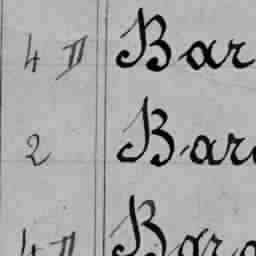 4 II Bar
2 Bar
4 II Bara